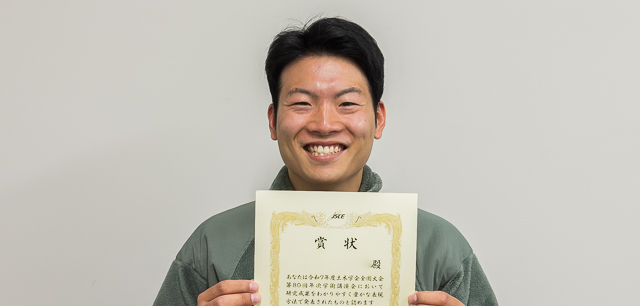 JSCE
賞状
殿
あなたは令和7年度土木学会全国大会
第80回年次学術講演会において
研究成果をわかりやすく豊かな表現
方法で発表されたものと認めます